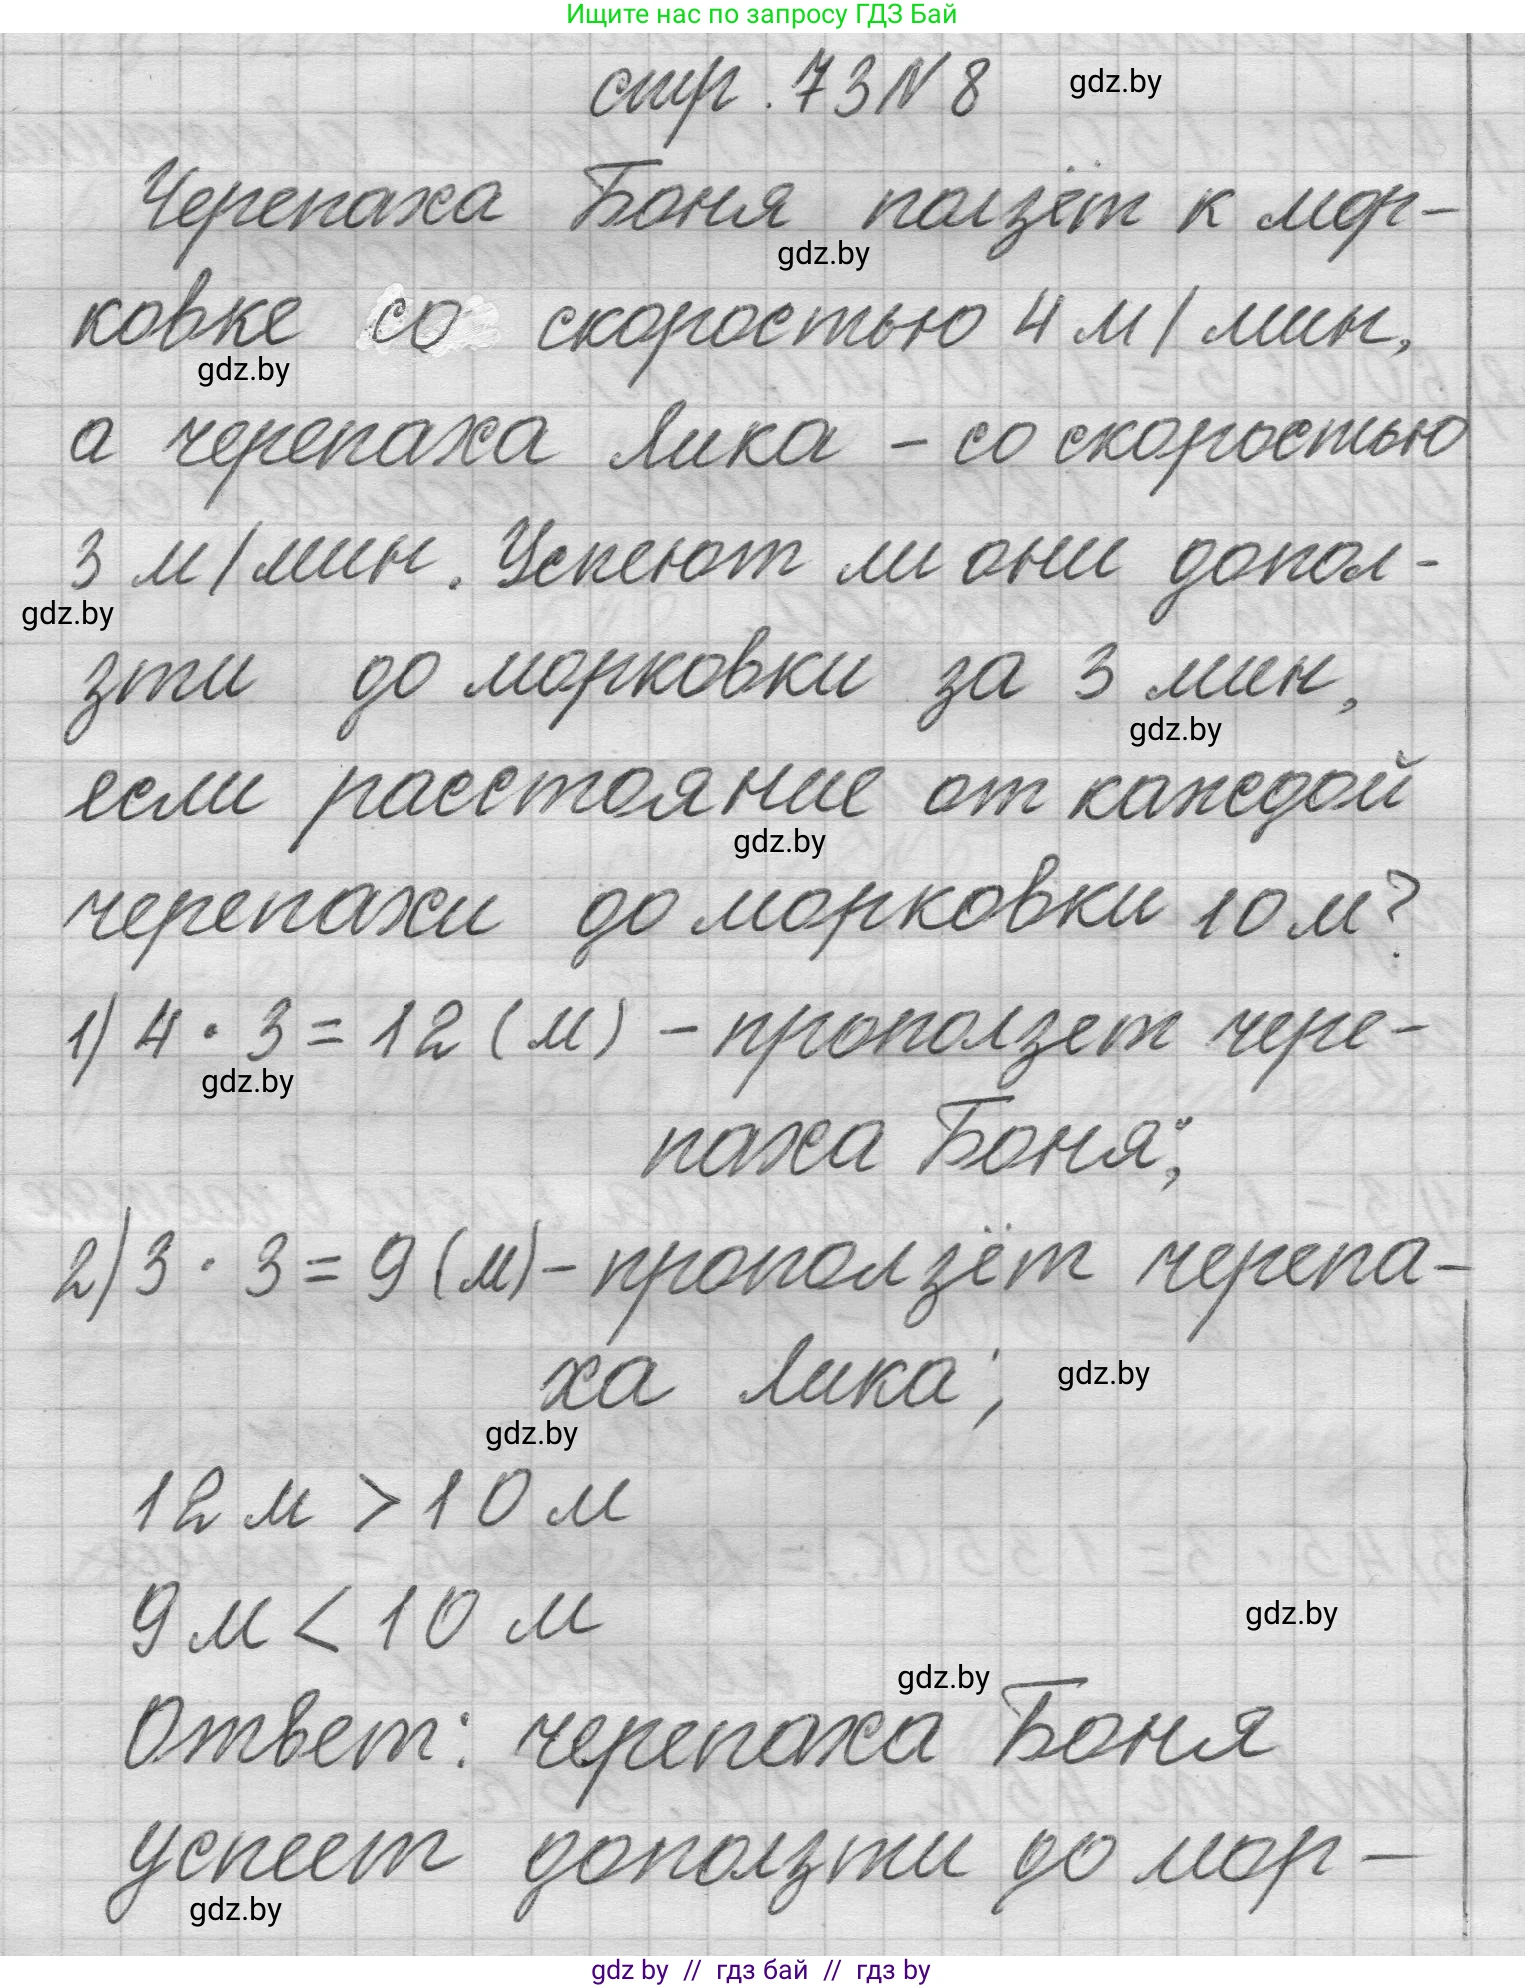 Ищите нас по запросу ГДЗ Бай
стр. 73 N 8 gdz.by
Черепаха Боня ползёт к мор-
gdz.by
ковке со скоростью 4 м/мин,
gdz.by
а черепаха Лика - со скоростью
3 м/мин. Успеют ли они допол-
gdz.by
зти до морковки за 3 мин,
gdz.by
если расстояние от каждой
gdz.by
черепахи до морковки 10 м?
1) 4 · 3 = 12 (м) - проползет чере-
gdz.by
паха Боня;
2) 3 · 3 = 9 (м) - проползёт черепа-
ха Лика; gdz.by
gdz.by
12 м > 10 м
9 м < 10 м gdz.by
gdz.by
Ответ: черепаха Боня
успеет доползти до мор-
gdz.by
gdz by // гдз бай // гдз by